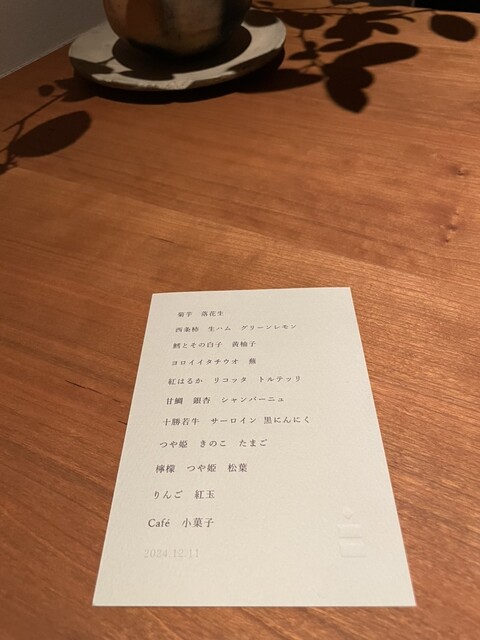 菊芋 落花生
西条柿 生ハム グリーンレモン
鱈とその白子 黄柚子
ヨロイイタチウオ 蕪
紅はるか リコッタ トルテッリ
甘鯛 銀杏 シャンパーニュ
十勝若牛 サーロイン 黒にんにく
つや姫 きのこ たまご
檸檬 つや姫 松葉
りんご 紅玉
Café 小菓子
2024.12.11